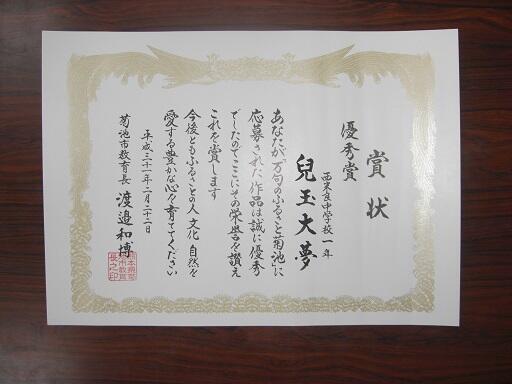 賞状
優秀賞
西米良中学校一年
兒玉大夢
あなたが「万句のふるさと菊池」に
応募された作品は誠に優秀
でしたのでここにその栄誉を讃え
これを賞します
今後ともふるさとの人 文化 自然を
愛する豊かな心を育ててください
平成三十一年二月二十二日
菊池市教育長 渡邉和博